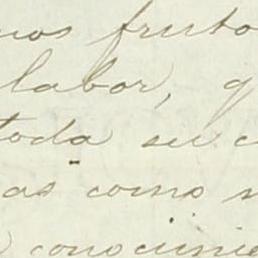 nos fruto
labor, q
toda su c
as como n
conocimie